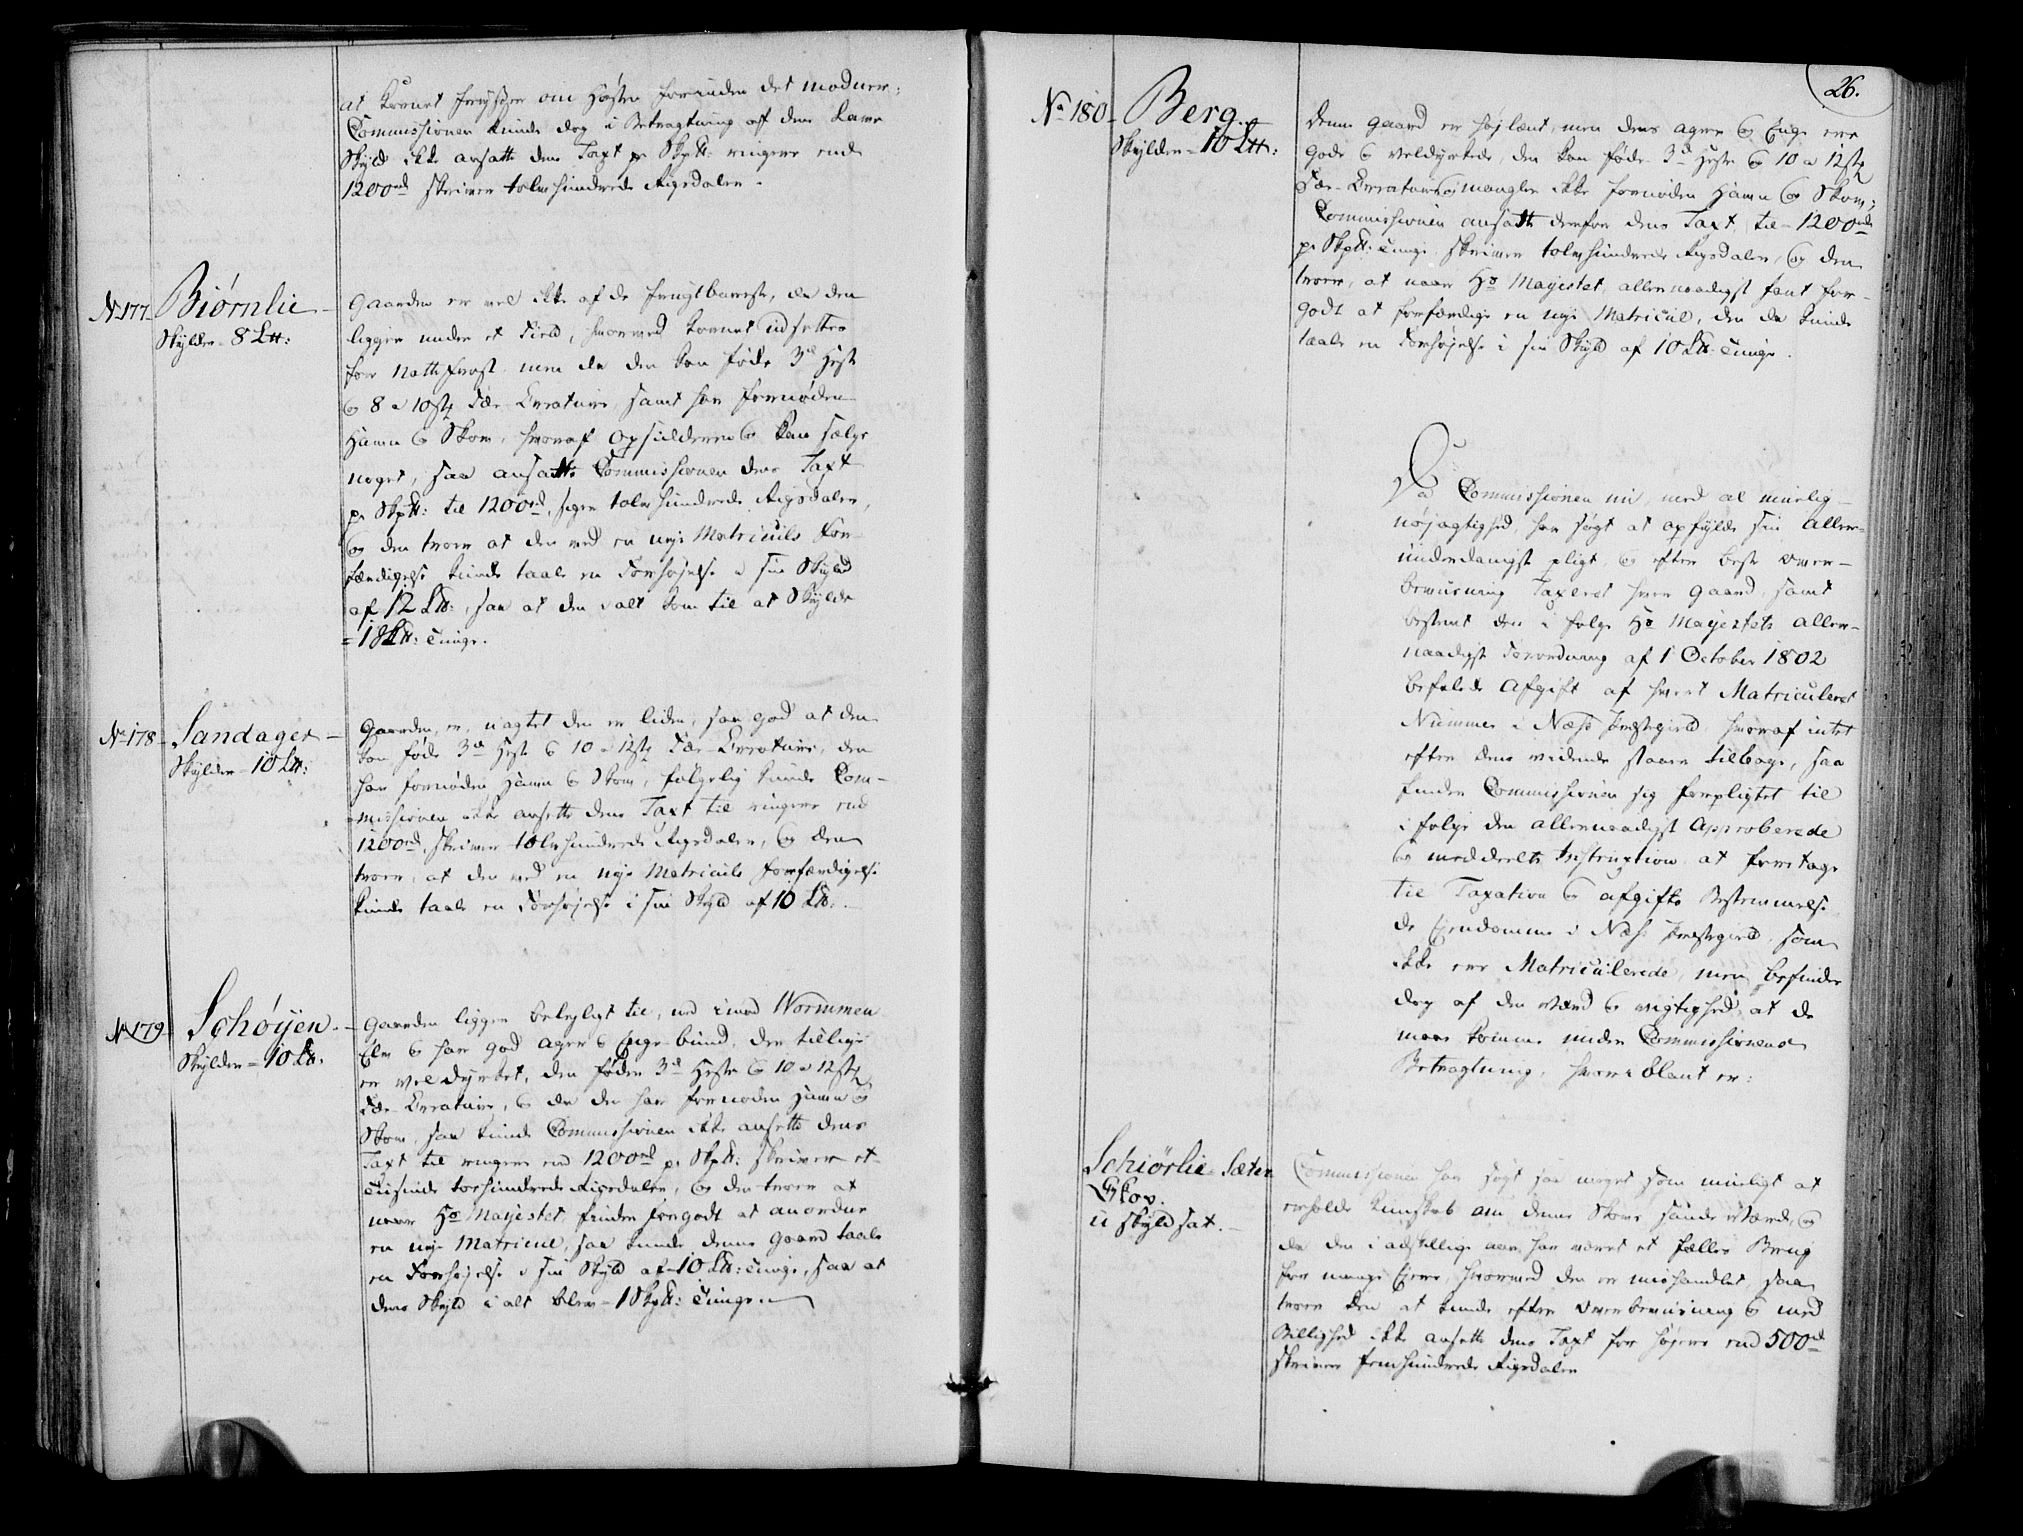 at Kornet fryser om Høsten forinden det modner;
Commissionen kunde dog i Betragtning af dens Lave
Skyld ikke ansatte dens Taxt pr Skp℔: ringere end
1200rd skriver tolv hundrede Rigsdaler.
No 177 Biørnlie
Skylder 8 L℔:
Gaarden er vel ikke af de frugtbareste, da den
ligger under et Field, hvorved Kornet udsettes
for Natte frost men da den kan føde 3de Heste
og 8 a 10 stk Fæe Creature, samt har fornøden
Hamn og Skov, hvoraf opsidderen og kan sælge
noget, saa ansatte Commissionen dens Taxt
pr Skp℔: til 1200rd, siger tolv hundrede Rigsdaler,
og den troer at den ved en nye Matriculs For-
færdigelse kunde taale en Forhøjelse i sin Skyld
af 12 L℔:, saa at den i alt kom til at Skylde
= 18 L℔: Tunge.
No 178 Sandager
Skylder 10 L℔:
Gaarden, er, uagtet den er liden, saa god at den
kan føde 3de Heste og 10 a 12 stk Fæe Creature, den
har fornøden Hamn og Skov, følgelig kunde Com-
missionen ikke ansette dens Taxt til ringere end
1200rd, skriver tolv hundrede Rigsdaler, og den
troer, at den ved en nye Matriculs forfærdigelse
kunde taale en Forhøjelse i sin Skyld af 10 L℔:
No 179 Schøyen
Skylder = 10 L℔.
Gaarden ligger belejligt til, ned imod Wormmen
Elv og har god ager og Enge-bund, der tillige
er vel dyrket, den føder 3de Heste og 10 a 12 stk
Fæe Creature, og da den har fornøden Hamn og
Skov, saa kunde Commissionen ikke ansette dens
Taxt til ringere end 1200rd pr Skp℔: skriver et
Tusinde tochundrede Rigsdaler, og den troer at
naar Hs Mayestet, finder forgodt at anordne
en nye Matricul, saa kunde denne Gaard taale
en Forhøjelse i sin Skyld af 10 L℔: Tunge, saa at
dens Skyld i alt blev 1 Skp℔: Tunge.
26.
No 180 Berg.
Skylder = 10 L℔:
Denne Gaard er højlænt, men dens ager og Enge ere
gode og veldyrkede, den kan føde 3de Heste og 10 a 12 stk
Fæe-Creature og mangler ikke fornøden Hamn og Skov;
Commissionen ansatte derfor dens Taxt til 1200rd
pr Skp℔: Tunge skriver tolv hundrede Rigsdaler, og den
troer, at naar Hs Mayestet, allernaadigst fant for-
godt at forfærdige en nye Matricul, den da kunde
taale en Forhøjelse i sin Skyld af 10 L℔: Tunge.
Da Commissionen nu, med al muelig
nøjagtighed, har søgt at opfylde sin Aller-
underdanigst pligt og efter beste over-
beviisning Taxeret hver Gaard, samt
bestemt den i følge Hs Mayestets aller-
naadigste Forordning af 1 October 1802
befalede Afgift af hvert Matriculeret
Nummer i Næss Præstegield hvoraf intet
efter dens vidende staaer tilbage, saa
finder Commissionen sig forpligtet til
i følge den allernaadigst Approberede
og meddeelte Instruxtion at foretage
til Taxation og afgifts Bestemmelse
de Eiendomme i Næss Præstegield, som
ikke ere Matriculerede, men befindes
dog af den Værd og vigtighed at de
maae komme under Commissionens
Betragtning, hvoriblant er:
Schiørlie Sæter
Skov.
u skyldsat.
Commissionen har søgt saa meget som mueligt at
erholde kundskab om denne Skovs sande Værd, og
da den i adskillige aar har været et fælles Brug
for mange Eiere, hvorved den er mishandlet, saa
troer den at kunde efter overbeviisning og med
Billighed ikke ansette dens Taxt for højere end 500rd
skriver femhundrede Rigsdaler